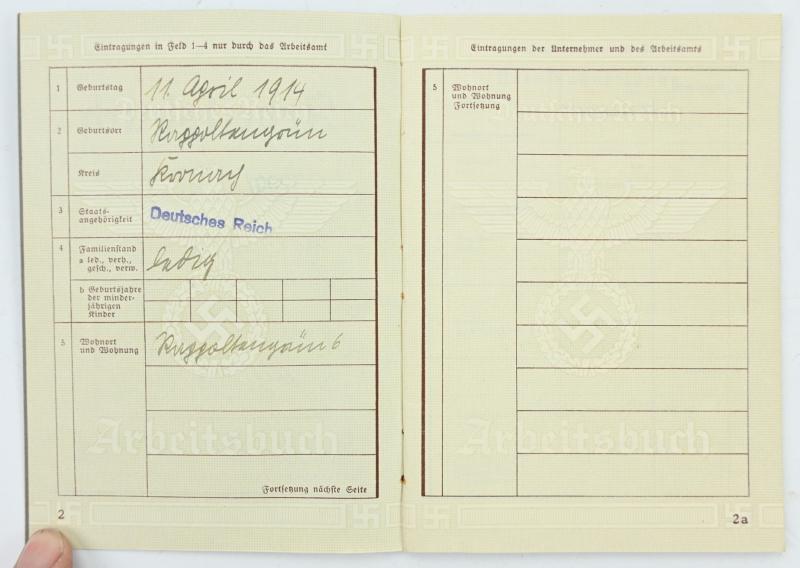 Eintragungen in Feld 1–4 nur durch das Arbeitsamt
1 Geburtstag 11. April 1914
2 Geburtsort
Kreis Kronach
3 Staats-
angehörigkeit Deutsches Reich
4 Familienstand
a led., verh.,
gesch., verw. ledig
b Geburtsjahre
der minder-
jährigen
Kinder
5 Wohnort
und Wohnung 6
Fortsetzung nächste Seite
Deutsches Reich
Arbeitsbuch
2
Eintragungen der Unternehmer und des Arbeitsamts
5 Wohnort
und Wohnung
Fortsetzung
Deutsches Reich
Arbeitsbuch
2a